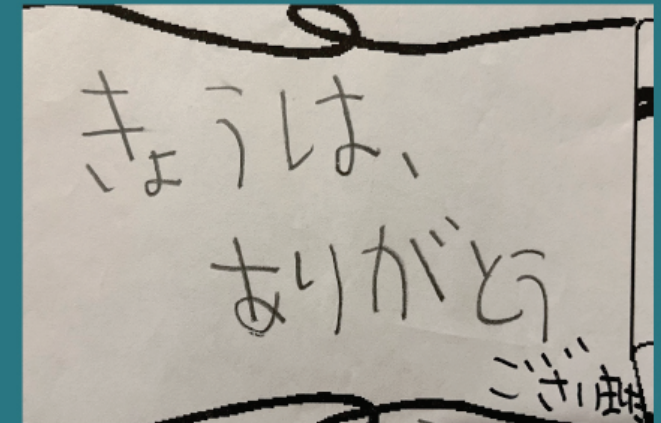 きょうは、
ありがとう
ござい